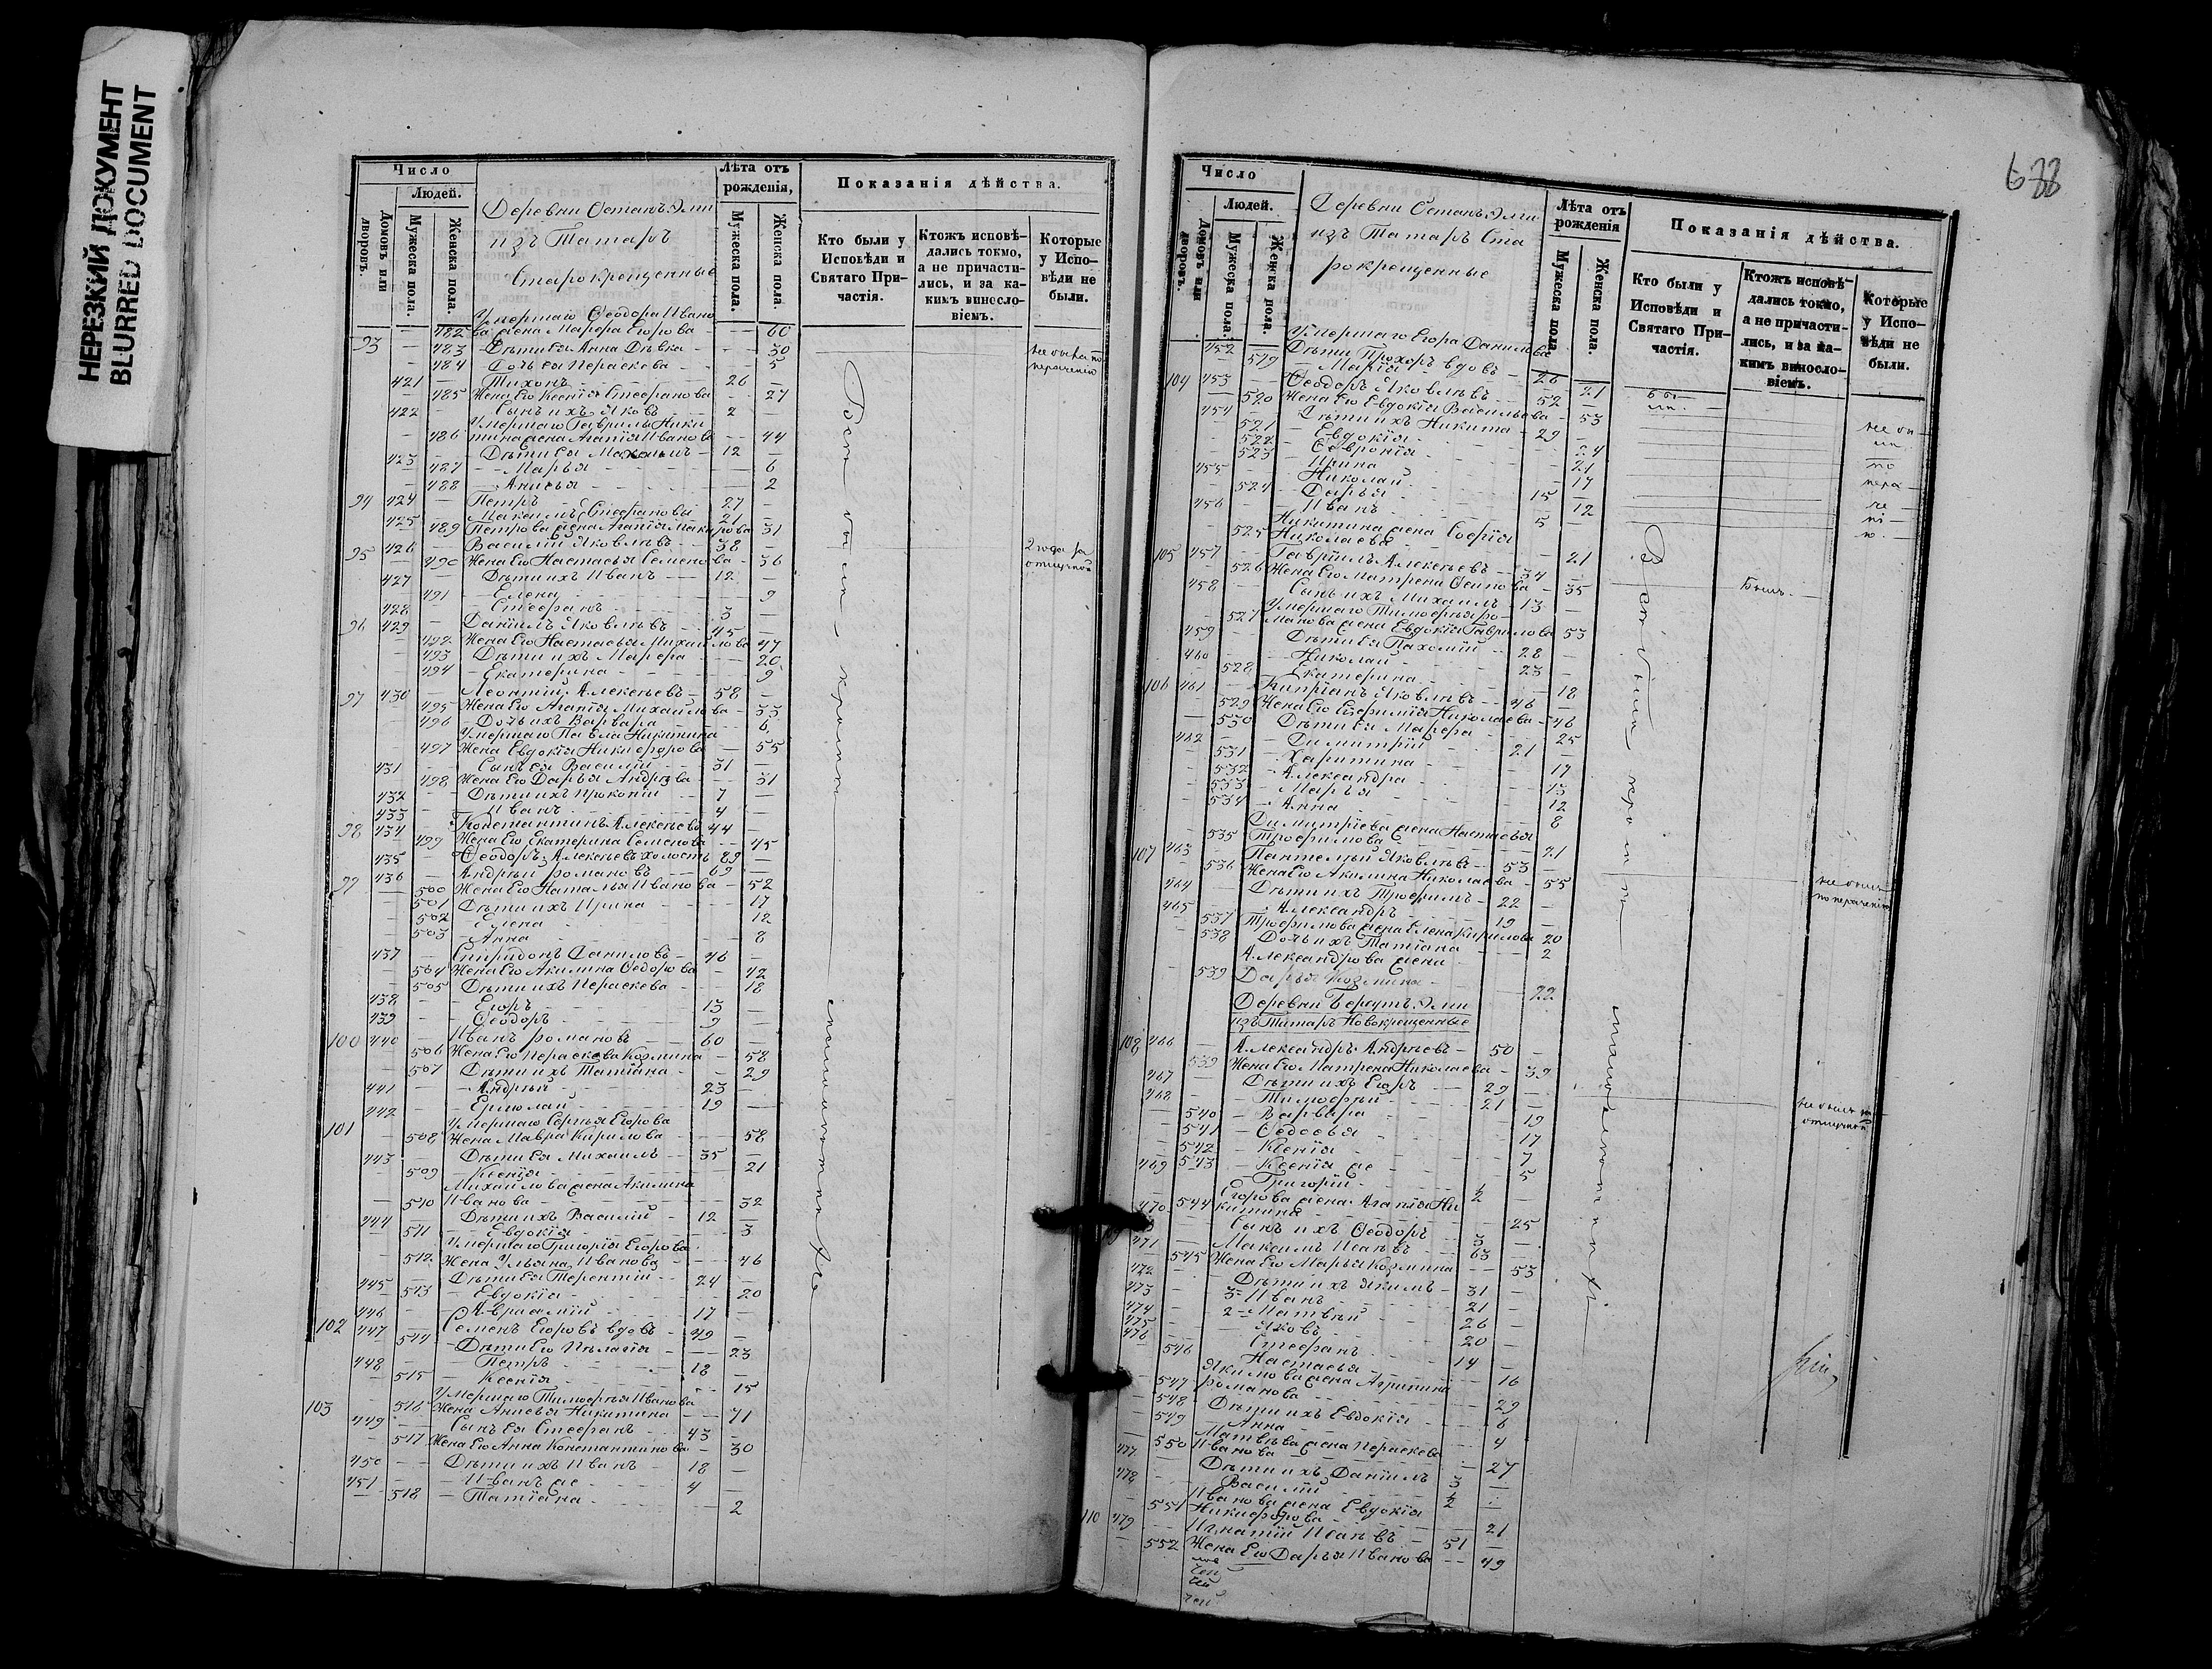 НЕРЕЗКИЙ ДОКУМЕНТ
BLURRED DOCUMENT
Число
Людей.
Домовъ или дворовъ.
Мужеска пола.
Женска пола.
Деревни Останъ Эли
изъ Татаръ
Старокрещенные
Лѣта отъ рожденія,
Мужеска пола.
Женска пола.
Показанія дѣйства.
Кто были у Исповѣди и Святаго Причастія.
Ктожъ исповѣдались токмо, а не причастились, и за какимъ винословіемъ.
Которые у Исповѣди не были.
Умершаго Ѳеодора Ивано
482 ва жена Марѳа Егорова 60
93 483 Дѣти Ея Анна Дѣвка 30
484 Дочь ея Параскева 5
421 Тихонъ 26
485 Жена Его Ксенія Стефанова 27
422 Сынъ ихъ Яковъ 2
Умершаго Гаврилы Ники
486 тина жена Агапія Иванова 44
423 Дѣти Ея Максимъ 12
487 Марья 6
488 Анисья 2
94 424 Петръ 27
425 Максимъ Стефановы 21
489 Петрова жена Агапія Макарова 31
95 426 Василій Яковлевъ 38
490 Жена Его Настасья Семенова 36
2 года за отлучкой
427 Дѣти ихъ Иванъ 12
491 Елена 9
428 Стефанъ 3
96 429 Даніилъ Яковлевъ 45
492 Жена Его Настасья Михайлова 47
493 Дѣти ихъ Марѳа 20
494 Екатерина 9
97 430 Леонтій Алексѣевъ 58
495 Жена Его Агапія Михайлова 53
496 Дочь ихъ Варвара 6
Умершаго Павла Никитина
497 Жена Евдокія Никифорова 55
431 Сынъ ея Василій 31
498 Жена Его Дарья Андрѣева 31
432 Дѣти ихъ Прокопій 7
433 Иванъ 4
98 434 Константинъ Алексѣевъ 44
499 Жена Его Екатерина Семенова 45
435 Ѳеодоръ Алексѣевъ холостъ 89
99 436 Андрей Романовъ 69
500 Жена Его Наталья Иванова 52
501 Дѣти ихъ Ирина 17
502 Елена 12
503 Анна 8
437 Спиридонъ Даниловъ 46
504 Жена Его Акилина Ѳедорова 42
505 Дѣти ихъ Параскева 18
438 Егоръ 13
439 Ѳеодоръ 9
100 440 Иванъ Романовъ 60
506 Жена Его Параскева Козмина 58
507 Дѣти ихъ Татіана 29
441 Андрей 23
442 Ермолай 19
101 Умершаго Сергѣя Егорова
508 Жена Мавра Кирилова 58
443 Дѣти Ея Михаилъ 35
509 Ксенія 21
Михайлова жена Акилина
510 Иванова 32
444 Дѣти ихъ Василій 12
511 Евдокія 3
Умершаго Григорія Егорова
512 Жена Ульяна Иванова 46
445 Дѣти Ея Терентій 24
513 Евдокія 20
446 Авраамій 17
102 447 Семенъ Егоровъ вдовъ 49
514 Дѣти Его Пелагія 23
448 Петръ 18
515 Ксенія 15
103 Умершаго Тимоѳея Иванова
516 Жена Анисья Никитина 71
449 Сынъ Ея Стефанъ 43
517 Жена Его Анна Константинова 30
450 Дѣти ихъ Иванъ 18
451 Иванъ же 4
518 Татіана 2
Число
Людей.
Домовъ или дворовъ.
Мужеска пола.
Женска пола.
Деревни Останъ Эли
изъ Татаръ Ста
рокрещенные
Лѣта отъ рожденія
Мужеска пола.
Женска пола.
Показанія дѣйства.
Кто были у Исповѣди и Святаго Причастія.
Ктожъ исповѣдались токмо, а не причастились, и за какимъ винословіемъ.
Которые у Исповѣди не были.
Умершаго Егора Данилова
452 Дѣти Прохоръ вдовъ 26
519 Марія 21
104 453 Ѳеодоръ Яковлевъ 52
520 Жена Его Евдокія Васильева 53
454 Дѣти ихъ Никита 29
521 Евдокія 24
522 Ѳевронія 21
523 Ирина 17
455 Николай 15
524 Дарья 12
456 Иванъ 5
Никитина жена Софія
525 Николаева 21
105 457 Гавріилъ Алексѣевъ 34
526 Жена Его Матрена Осипова 35
458 Сынъ ихъ Михаилъ 13
Умершаго Тимоѳея Ро
527 манова жена Евдокія Гаврилова 53
459 Дѣти Ея Пахомій 28
460 Николай 23
528 Екатерина 18
106 461 Кипріанъ Яковлевъ 46
529 Жена Его Евфимія Николаева 46
530 Дѣти Ея Марѳа 25
462 Димитрій 21
531 Харитина 17
532 Александра 13
533 Марья 12
534 Анна 8
Димитріева жена Настасья
535 Трофимова 21
107 463 Пантелей Яковлевъ 53
536 Жена Его Акилина Николаева 55
464 Дѣти ихъ Трофимъ 22
465 Александръ 19
537 Трофимова жена Елена Кирилова 20
538 Дочь ихъ Татіана 2
Александрова жена
539 Дарья Козмина 22
изъ Татаръ Новокрещенные
108 466 Александръ Андрѣевъ 50
539 Жена Его Матрена Николаева 39
467 Дѣти ихъ Егоръ 29
468 Тимоѳей 21
540 Варвара 19
541 Ѳедосья 17
542 Ксенія 7
543 Ксенія же 5
469 Григорій 1/2
Егорова жена Агапія Ни
544 китина 25
470 Сынъ ихъ Ѳеодоръ 3
471 Максимъ Исаевъ 63
545 Жена Его Марья Козмина 53
472 Дѣти ихъ Якимъ 31
473 3 Иванъ 21
474 2 Матвѣй 26
475 Яковъ 20
476 Стефанъ 14
546 Настасья 16
Якимова жена Агрипина
547 Романова 29
548 Дѣти ихъ Евдокія 6
549 Анна 4
Матвѣева жена Параскева
550 Иванова 27
477 Дѣти ихъ Даніилъ 3
478 Василій 1/2
Иванова жена Евдокія
551 Никифорова 21
110 479 Игнатій Исаевъ 51
552 Жена Его Дарья Иванова 49